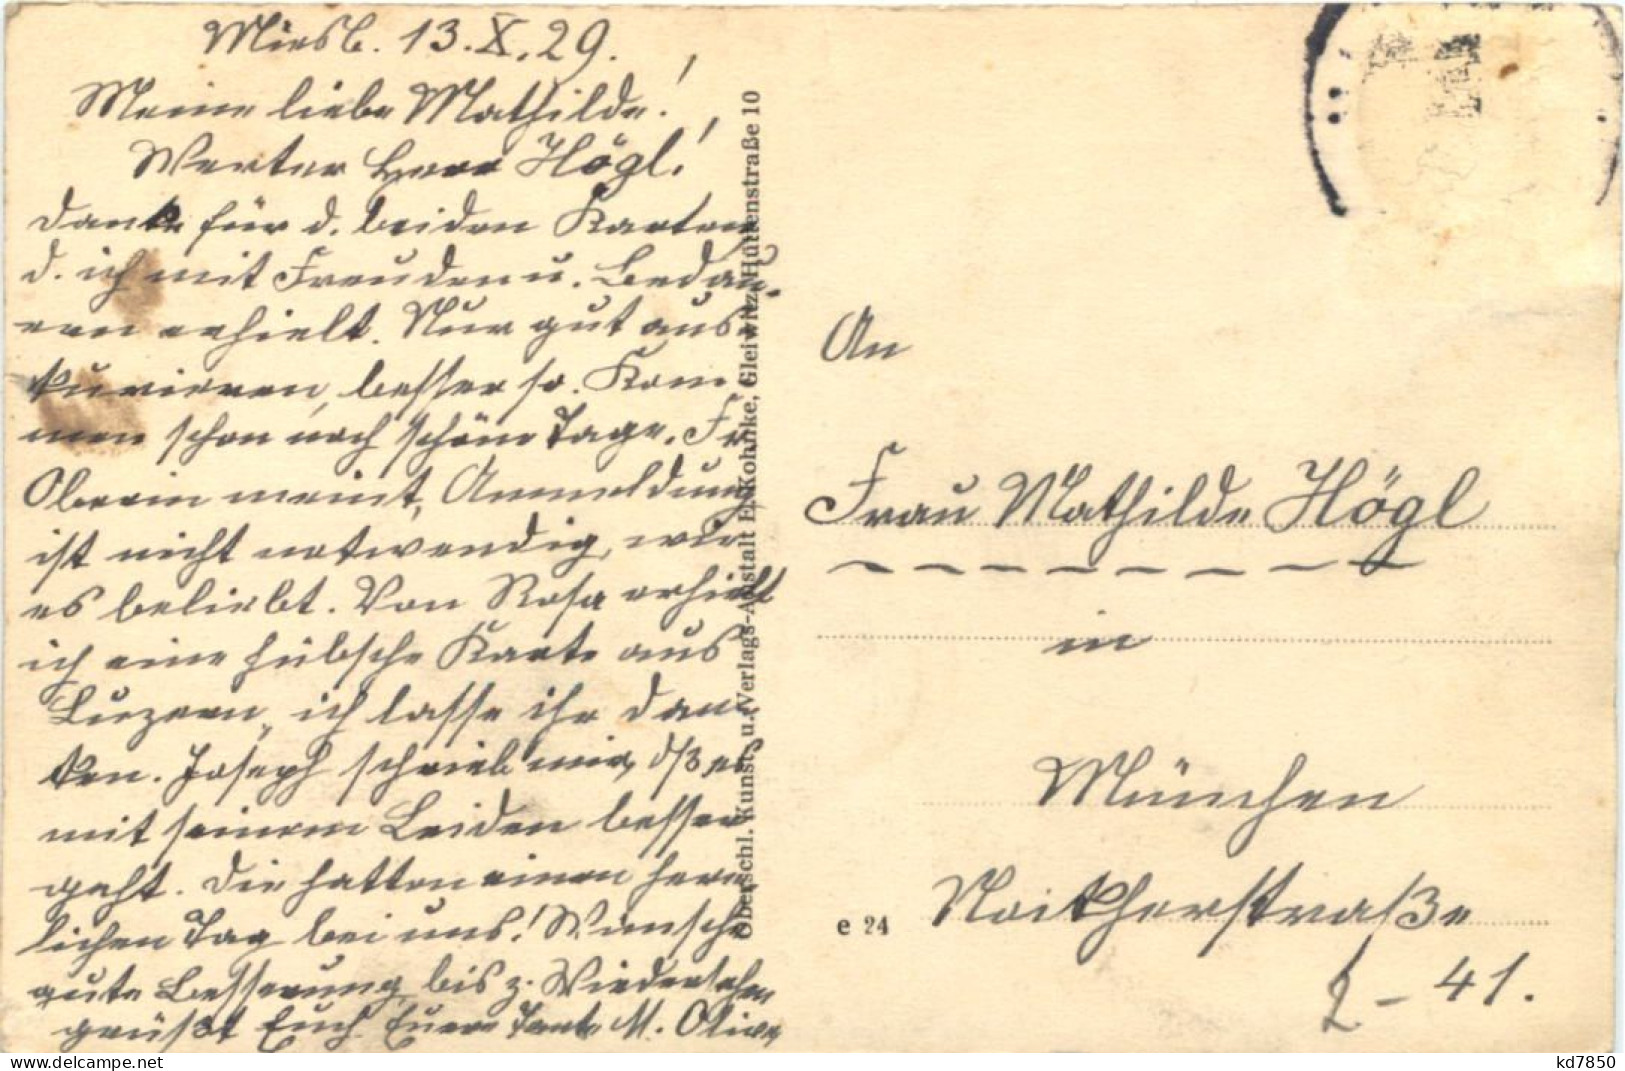 Miesb. 13.X.29.
Meine liebe Mathilde!
Werter Herr Högl!
Danke für d. beiden Karten
d. ich mit Freuden u. Bedau-
ern erhielt. Nur gut aus-
kurieren, besser so. Kom-
men schon noch schöne Tage. Fr.
Oberin meint, Anmeldung
ist nicht notwendig, wir
es beliebt. Von Rosa erhielt
ich eine hübsche Karte aus
Luzern, ich lasse ihr dan-
ken. Joseph schrieb mir, dß es
mit seinem Leiden besser
geht. Die hatten einen herr-
lichen Tag bei uns! Wünsche
gute Besserung, bis z. Wiedersehen
grüßt Euch Eure Tante M.
Oberschl. Kunst- u. Verlags-Anstalt E. Kohnke, Gleiwitz, Hüttenstraße 10
An
Frau Mathilde Högl
in
München
e 24
41.
kd7850